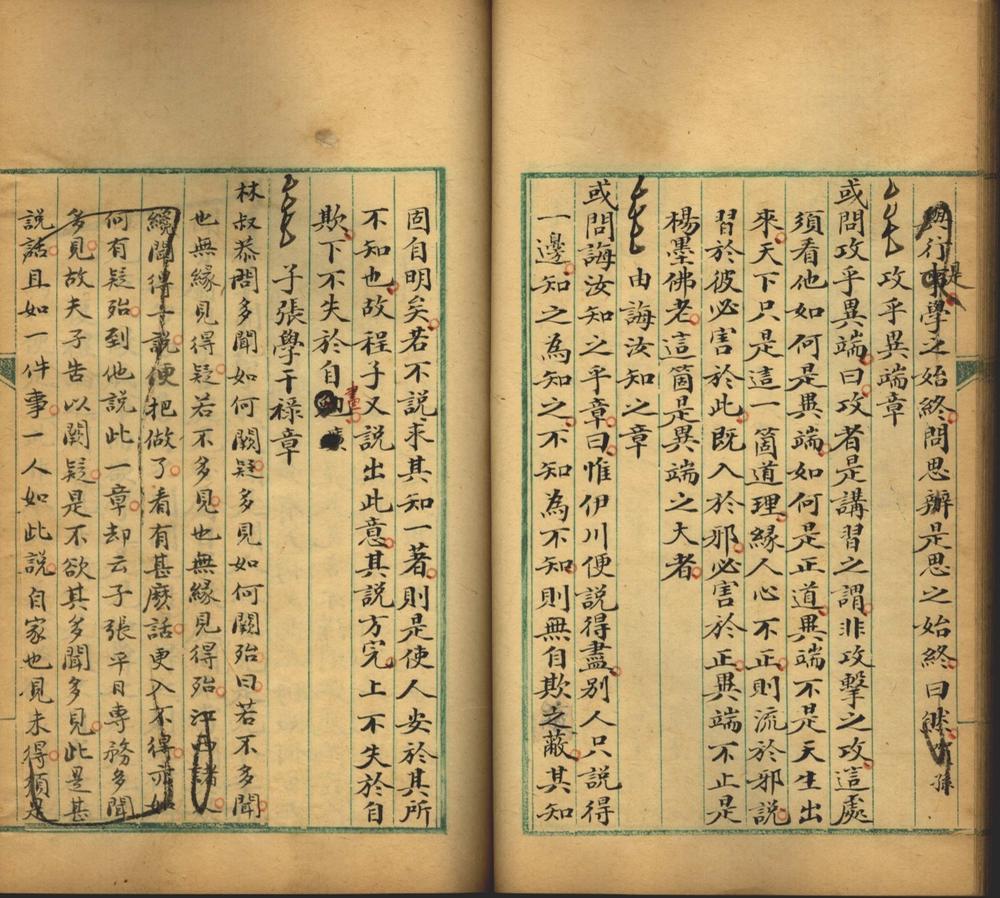 行事學之始終問思辨是思之始終曰然
是
孫
攻乎異端章
或問攻乎異端曰攻者是講習之謂非攻擊之攻這處
須看他如何是異端如何是正道異端不是天生出
來天下只是這一箇道理緣人心不正則流於邪說
習於彼必害於此既入於邪必害於正異端不止是
楊墨佛老這箇是異端之大者
由誨汝知之章
或問誨汝知之乎章曰惟伊川便說得盡別人只說得
一邊知之為知之不知為不知則無自欺之蔽其知
固自明矣若不說求其知一著則是使人安於其所
不知也故程子又說出此意其說方完上不失於自
欺下不失於自
畫
子張學干祿章
林叔恭問多聞如何闕疑多見如何闕殆曰若不多聞
也無緣見得疑若不多見也無緣見得殆江西諸人
纔聞得一說便把做了看有甚麼話更入不得亦如
何有疑殆到他說此一章却云子張平日專務多聞
多見故夫子告以闕疑是不欲其多聞多見此是甚
說話且如一件事一人如此說自家也見未得須是